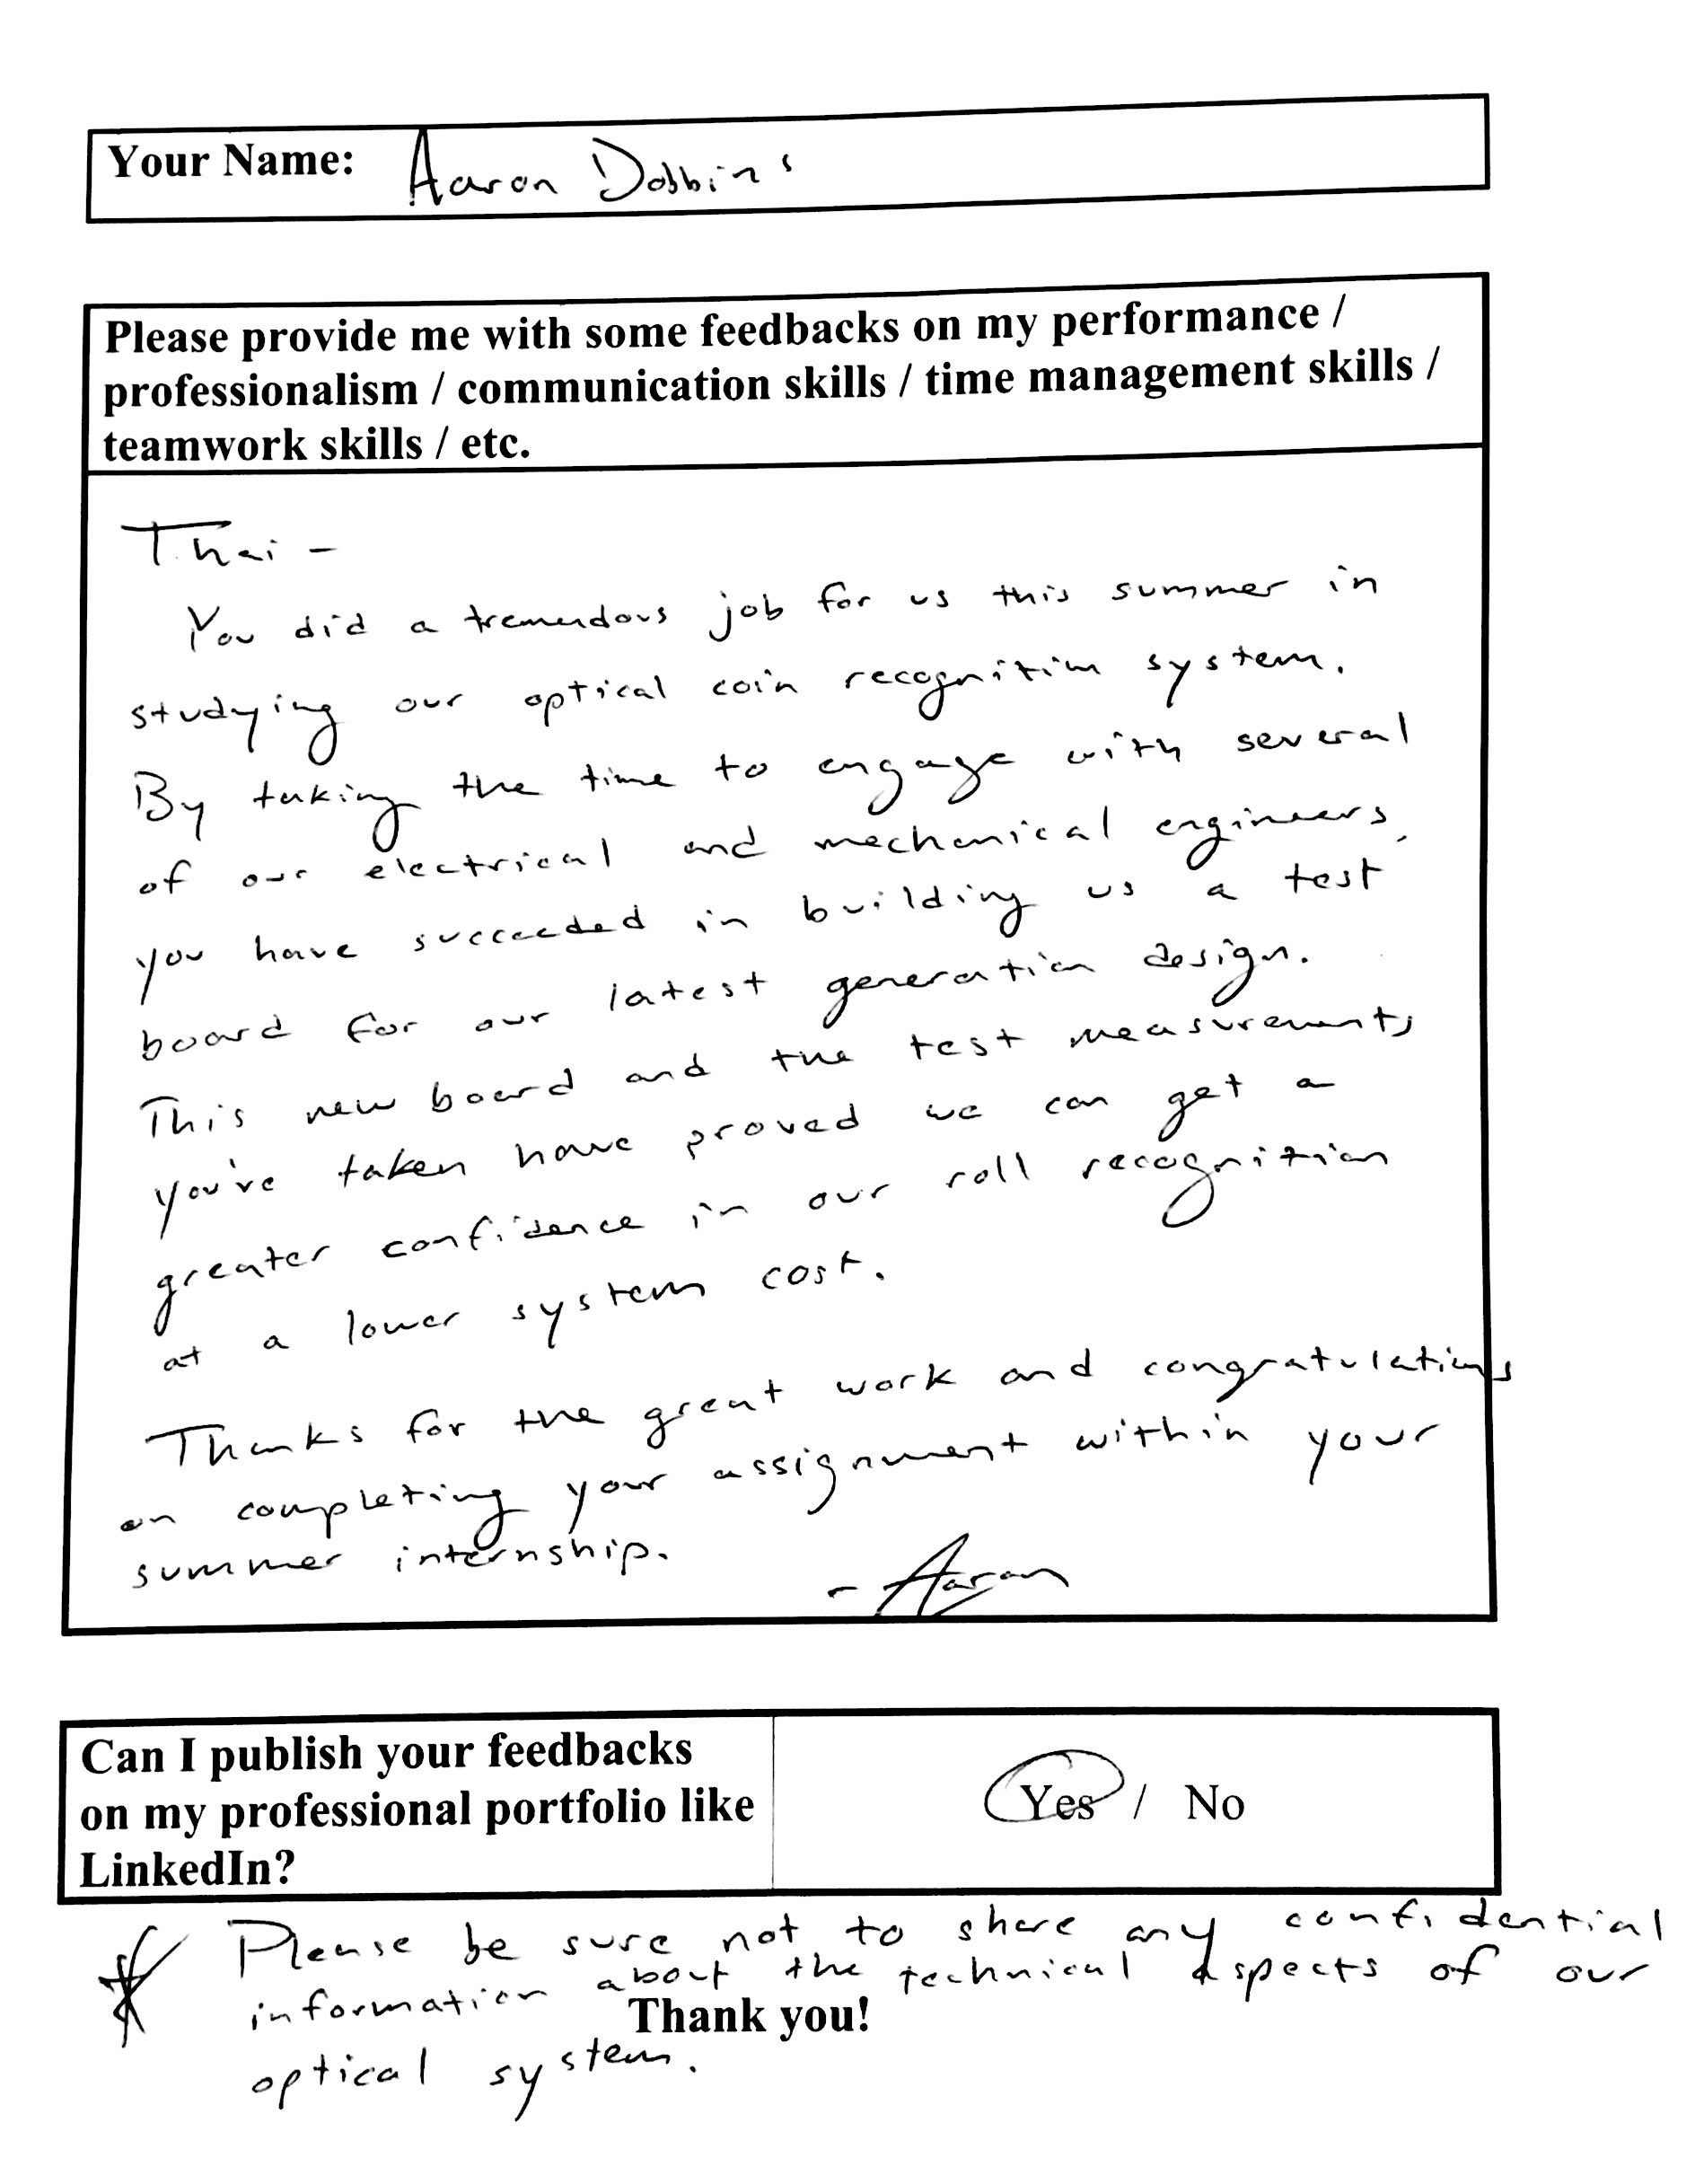 Your Name: Aaron Dobbins
Please provide me with some feedbacks on my performance /
professionalism / communication skills / time management skills /
teamwork skills / etc.
Thai -
You did a tremendous job for us this summer in
studying our optical coin recognition system.
By taking the time to engage with several
of our electrical and mechanical engineers,
you have succeeded in building us a test
board for our latest generation design.
This new board and the test measurements
you've taken have proved we can get a
greater confidence in our roll recognition
at a lower system cost.
Thanks for the great work and congratulations
on completing your assignment within your
summer internship.
- Aaron
Can I publish your feedbacks
on my professional portfolio like
LinkedIn?
Yes / No
* Please be sure not to share any confidential
information about the technical aspects of our
optical system.
Thank you!